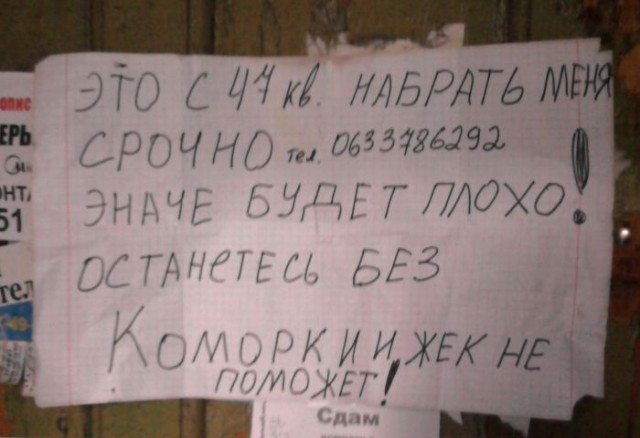 ЭТО С 47 кв. НАБРАТЬ МЕНЯ
СРОЧНО тел. 0633786292
ЭНАЧЕ БУДЕТ ПЛОХО!
ОСТАНЕТЕСЬ БЕЗ
КОМОРКИ И ЖЕК НЕ
ПОМОЖЕТ!
51
Сдам